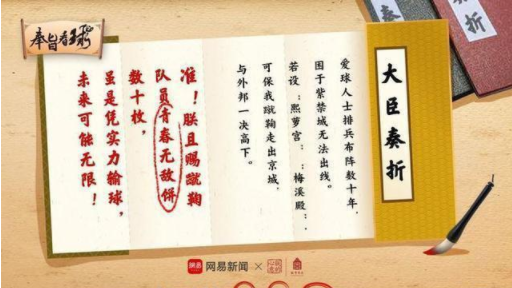 奉旨看球
奏折
大臣奏折
爱球人士排兵布阵数十年,
困于紫禁城无法出线。
若设:熙萝宫::梅溪殿:.
可保我蹴鞠走出京城,
与外邦一决高下。
准!朕且赐蹴鞠
队员青春无敌饼
数十枚,
虽是凭实力输球,
未来可能无限!
网易 网易新闻 ×